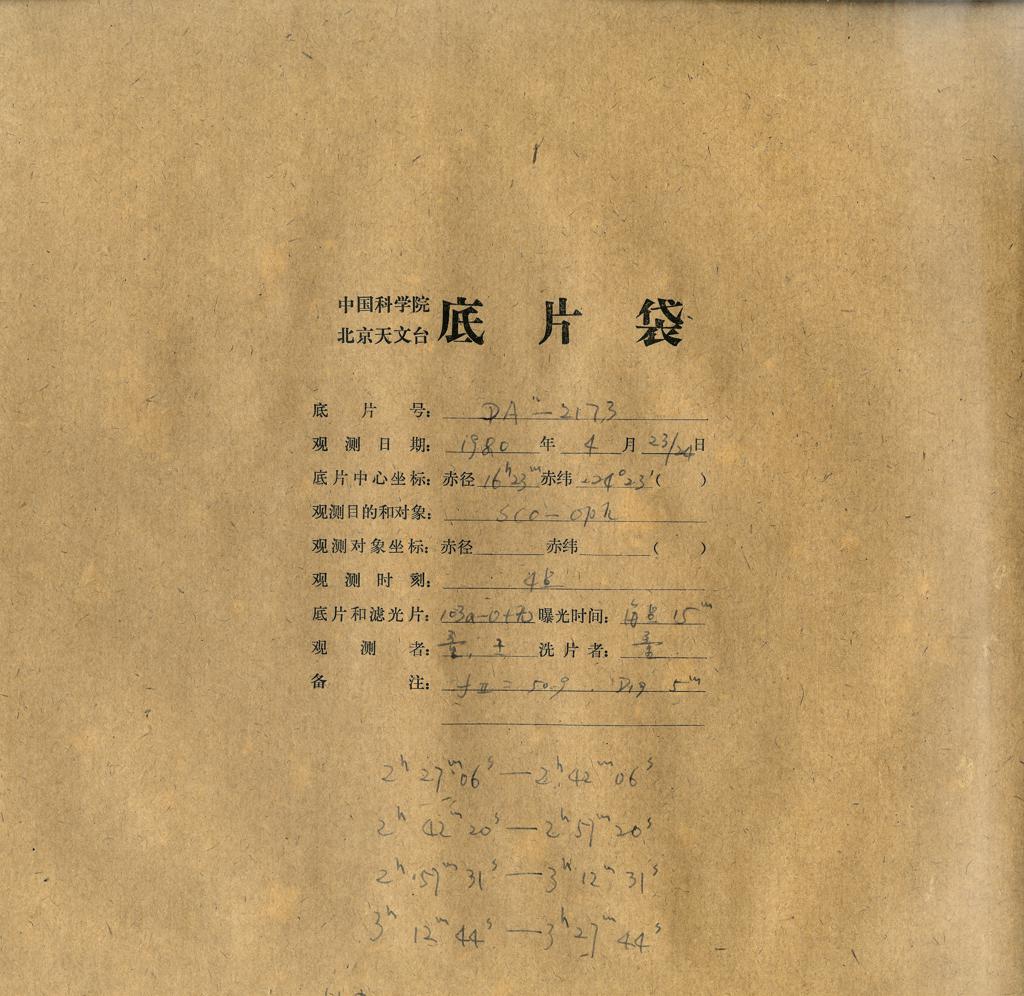 中国科学院
北京天文台
底片袋
底片号: DA"-2173
观测日期: 1980 年 4 月 23/24 日
底片中心坐标: 赤径 16ʰ23ᵐ 赤纬 -24°23′( )
观测目的和对象: SCO-Oph
观测对象坐标: 赤径 赤纬 ( )
观测时刻: 4
底片和滤光片: 103a-O+无 曝光时间: 每 15ᵐ
观测者: 王 洗片者:
备注: fⅡ = 50.9 D19 5ᵐ
2ʰ27ᵐ06ˢ—2ʰ42ᵐ06ˢ
2ʰ42ᵐ20ˢ—2ʰ57ᵐ20ˢ
2ʰ57ᵐ31ˢ—3ʰ12ᵐ31ˢ
3ʰ12ᵐ44ˢ—3ʰ27ᵐ44ˢ